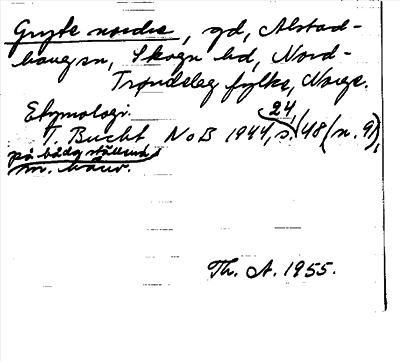 Gryte nordre, gd, Alstad-
haugsn, Skogn hd, Nord-
Trøndelag fylke, Norge.
Etymologi.
24
T. Bucht NoB 1944, s. 48 (n. 9),
på båda ställena
m. hänv.
Th. A. 1955.